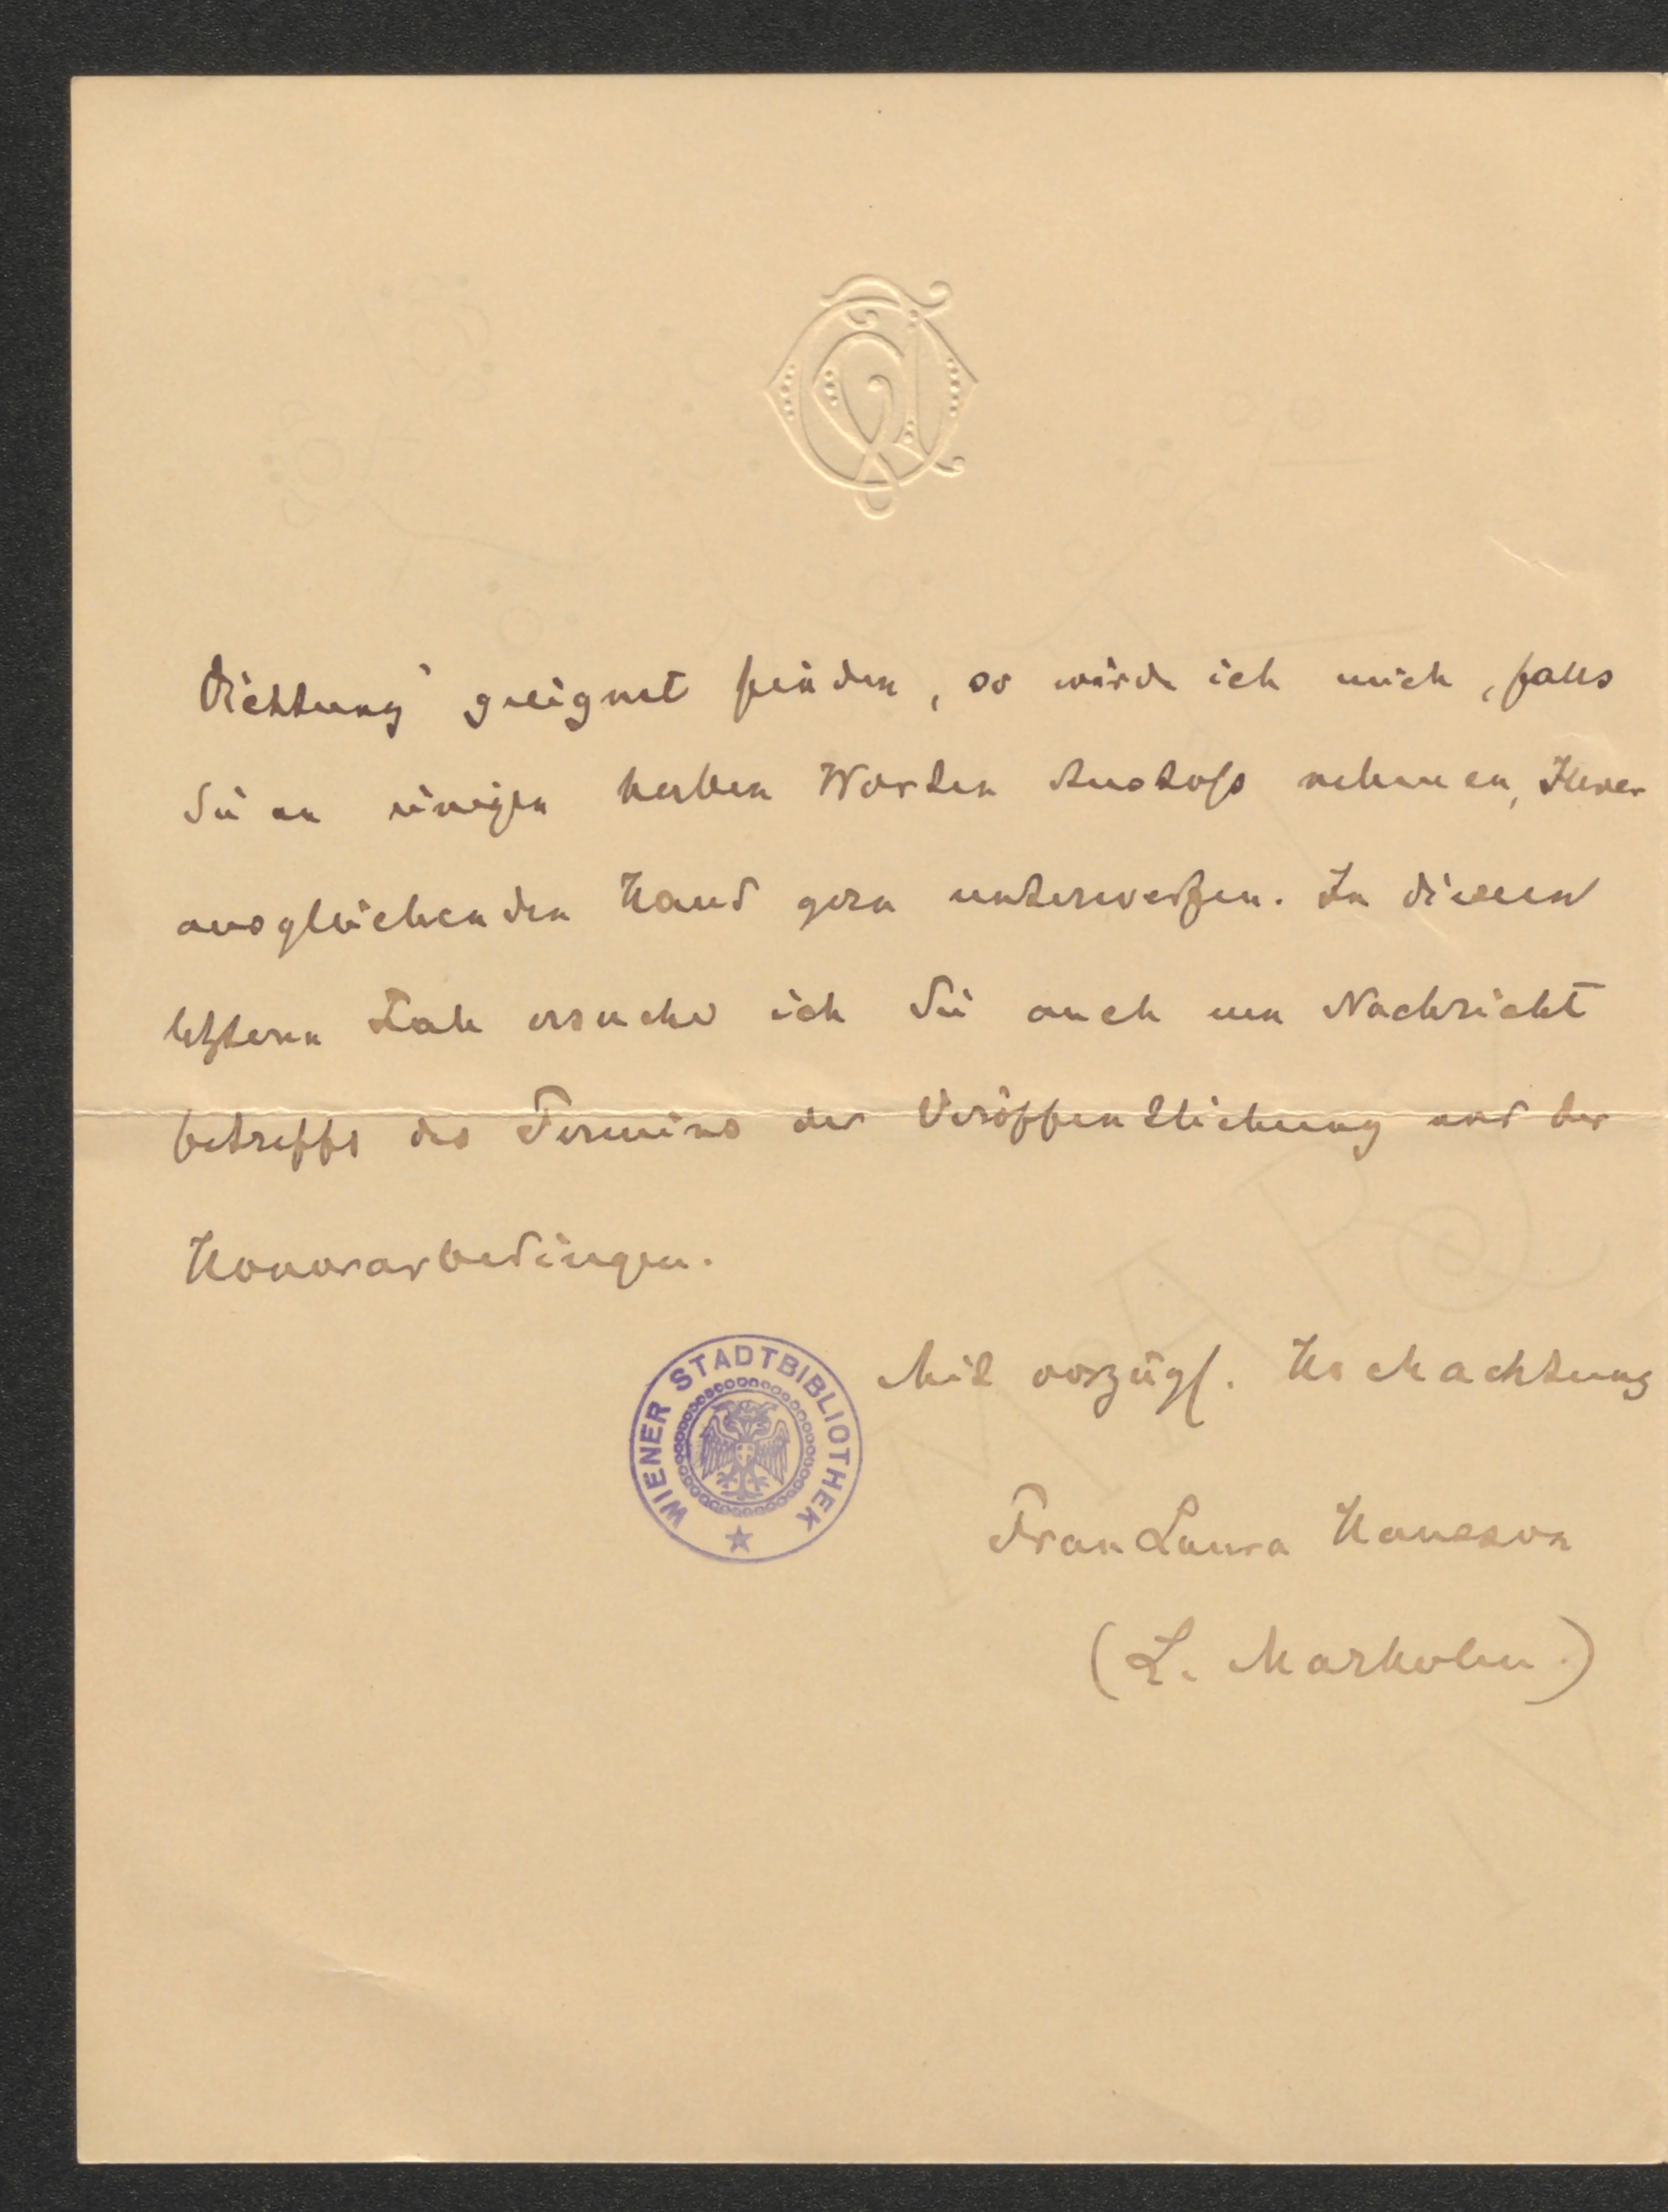 Dichtung" geeignet finden, so würde ich mich, falls
Sie an einigen herben Worten Anstoß nehmen, Ihrer
ausgleichenden Hand gern unterwerfen. In diesem
letztern Fall ersuche ich Sie auch um Nachricht
betreffs des Termins der Veröffentlichung und der
Honorarbedingen.
WIENER STADTBIBLIOTHEK
Mit vorzügl. Hochachtung
Frau Laura Hansson
(L. Marholm.)